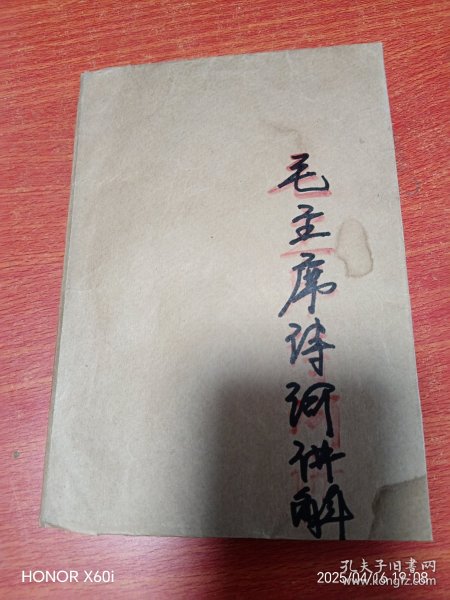 毛主席诗词讲解
HONOR X60i
2025/04/16 19:08
孔夫子旧书网
www.kongfz.com